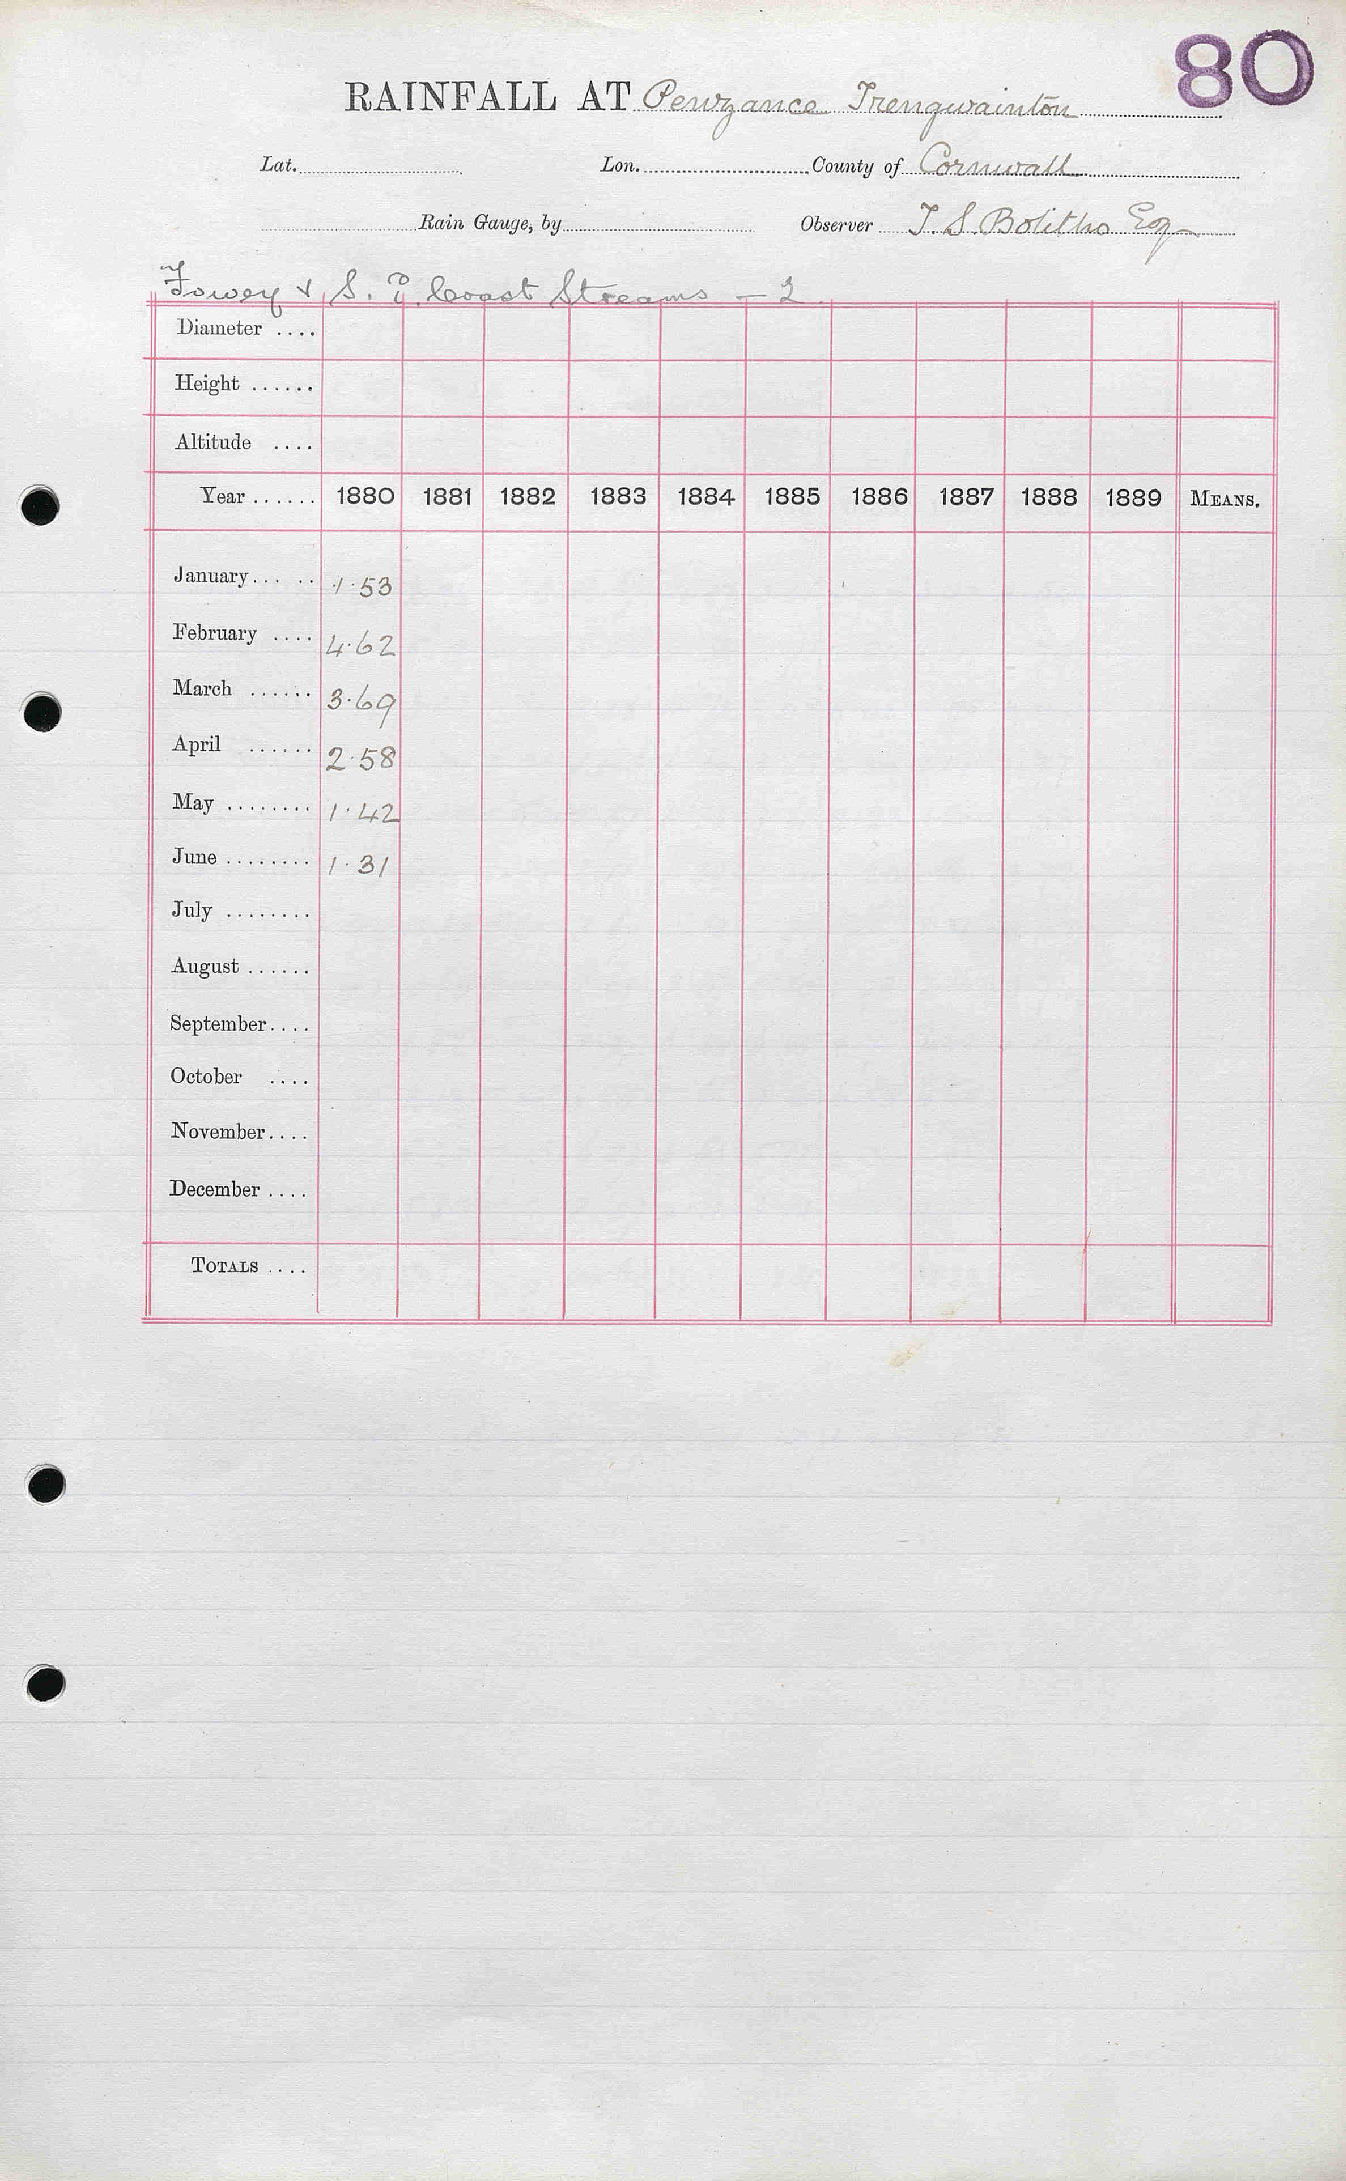 80
RAINFALL AT Penzance Trengwainton
Lat. Lon. County of Cornwall
Rain Gauge, by Observer T. S. Bolitho Esq
Fowey & S. Coast Streams - 2
Diameter ....
Height ......
Altitude ....
Year ...... 1880 1881 1882 1883 1884 1885 1886 1887 1888 1889 MEANS.
January... .. 1.53
February .... 4.62
March ...... 3.69
April ...... 2.58
May ........ 1.42
June ........ 1.31
July ........
August ......
September....
October ....
November....
December ....
TOTALS ....